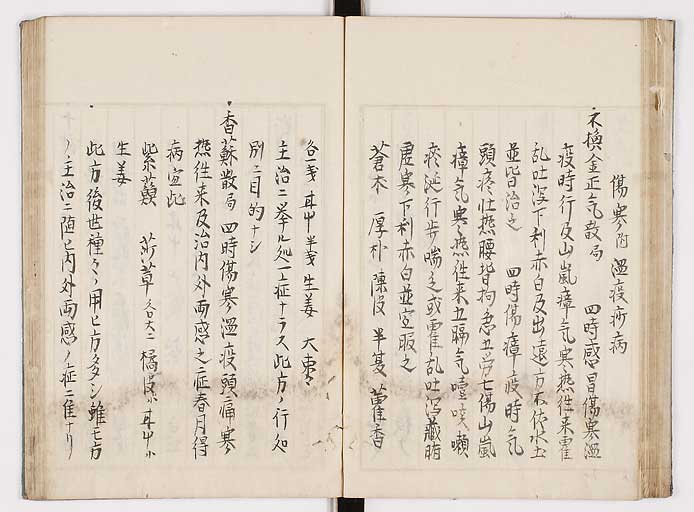 傷寒附 溫疫痢病
不換金正气散局 四時感冒傷寒溫
疫時行及山嵐瘴气寒熱往来霍
乱吐瀉下利赤白及出遠方不依水土
並皆治之 四時傷瘴疫時气
頭疼壮熱腰背拘急五労七傷山嵐
瘴气寒熱往来五膈气噎咳嗽
痰涎行步喘乏或霍乱吐瀉臓腑
虚寒下利赤白並宜服之
蒼朮 厚朴 陳皮 半夏 藿香
各二戔 甘中半戔 生姜 大棗
主治ニ挙ル処一症ナラス此方ノ行処
別ニ目的ナシ
香蘇散局 四時傷寒溫疫頭痛寒
熱往来及治内外両感之症春月得
病宜此
紫蘇 莎草各大二 橘皮小 甘中小
生姜
此方後世種々ノ用ヒ方多シ雖モ方
ノ主治ニ随ヒ内外両感ノ症ニ隹ナリ